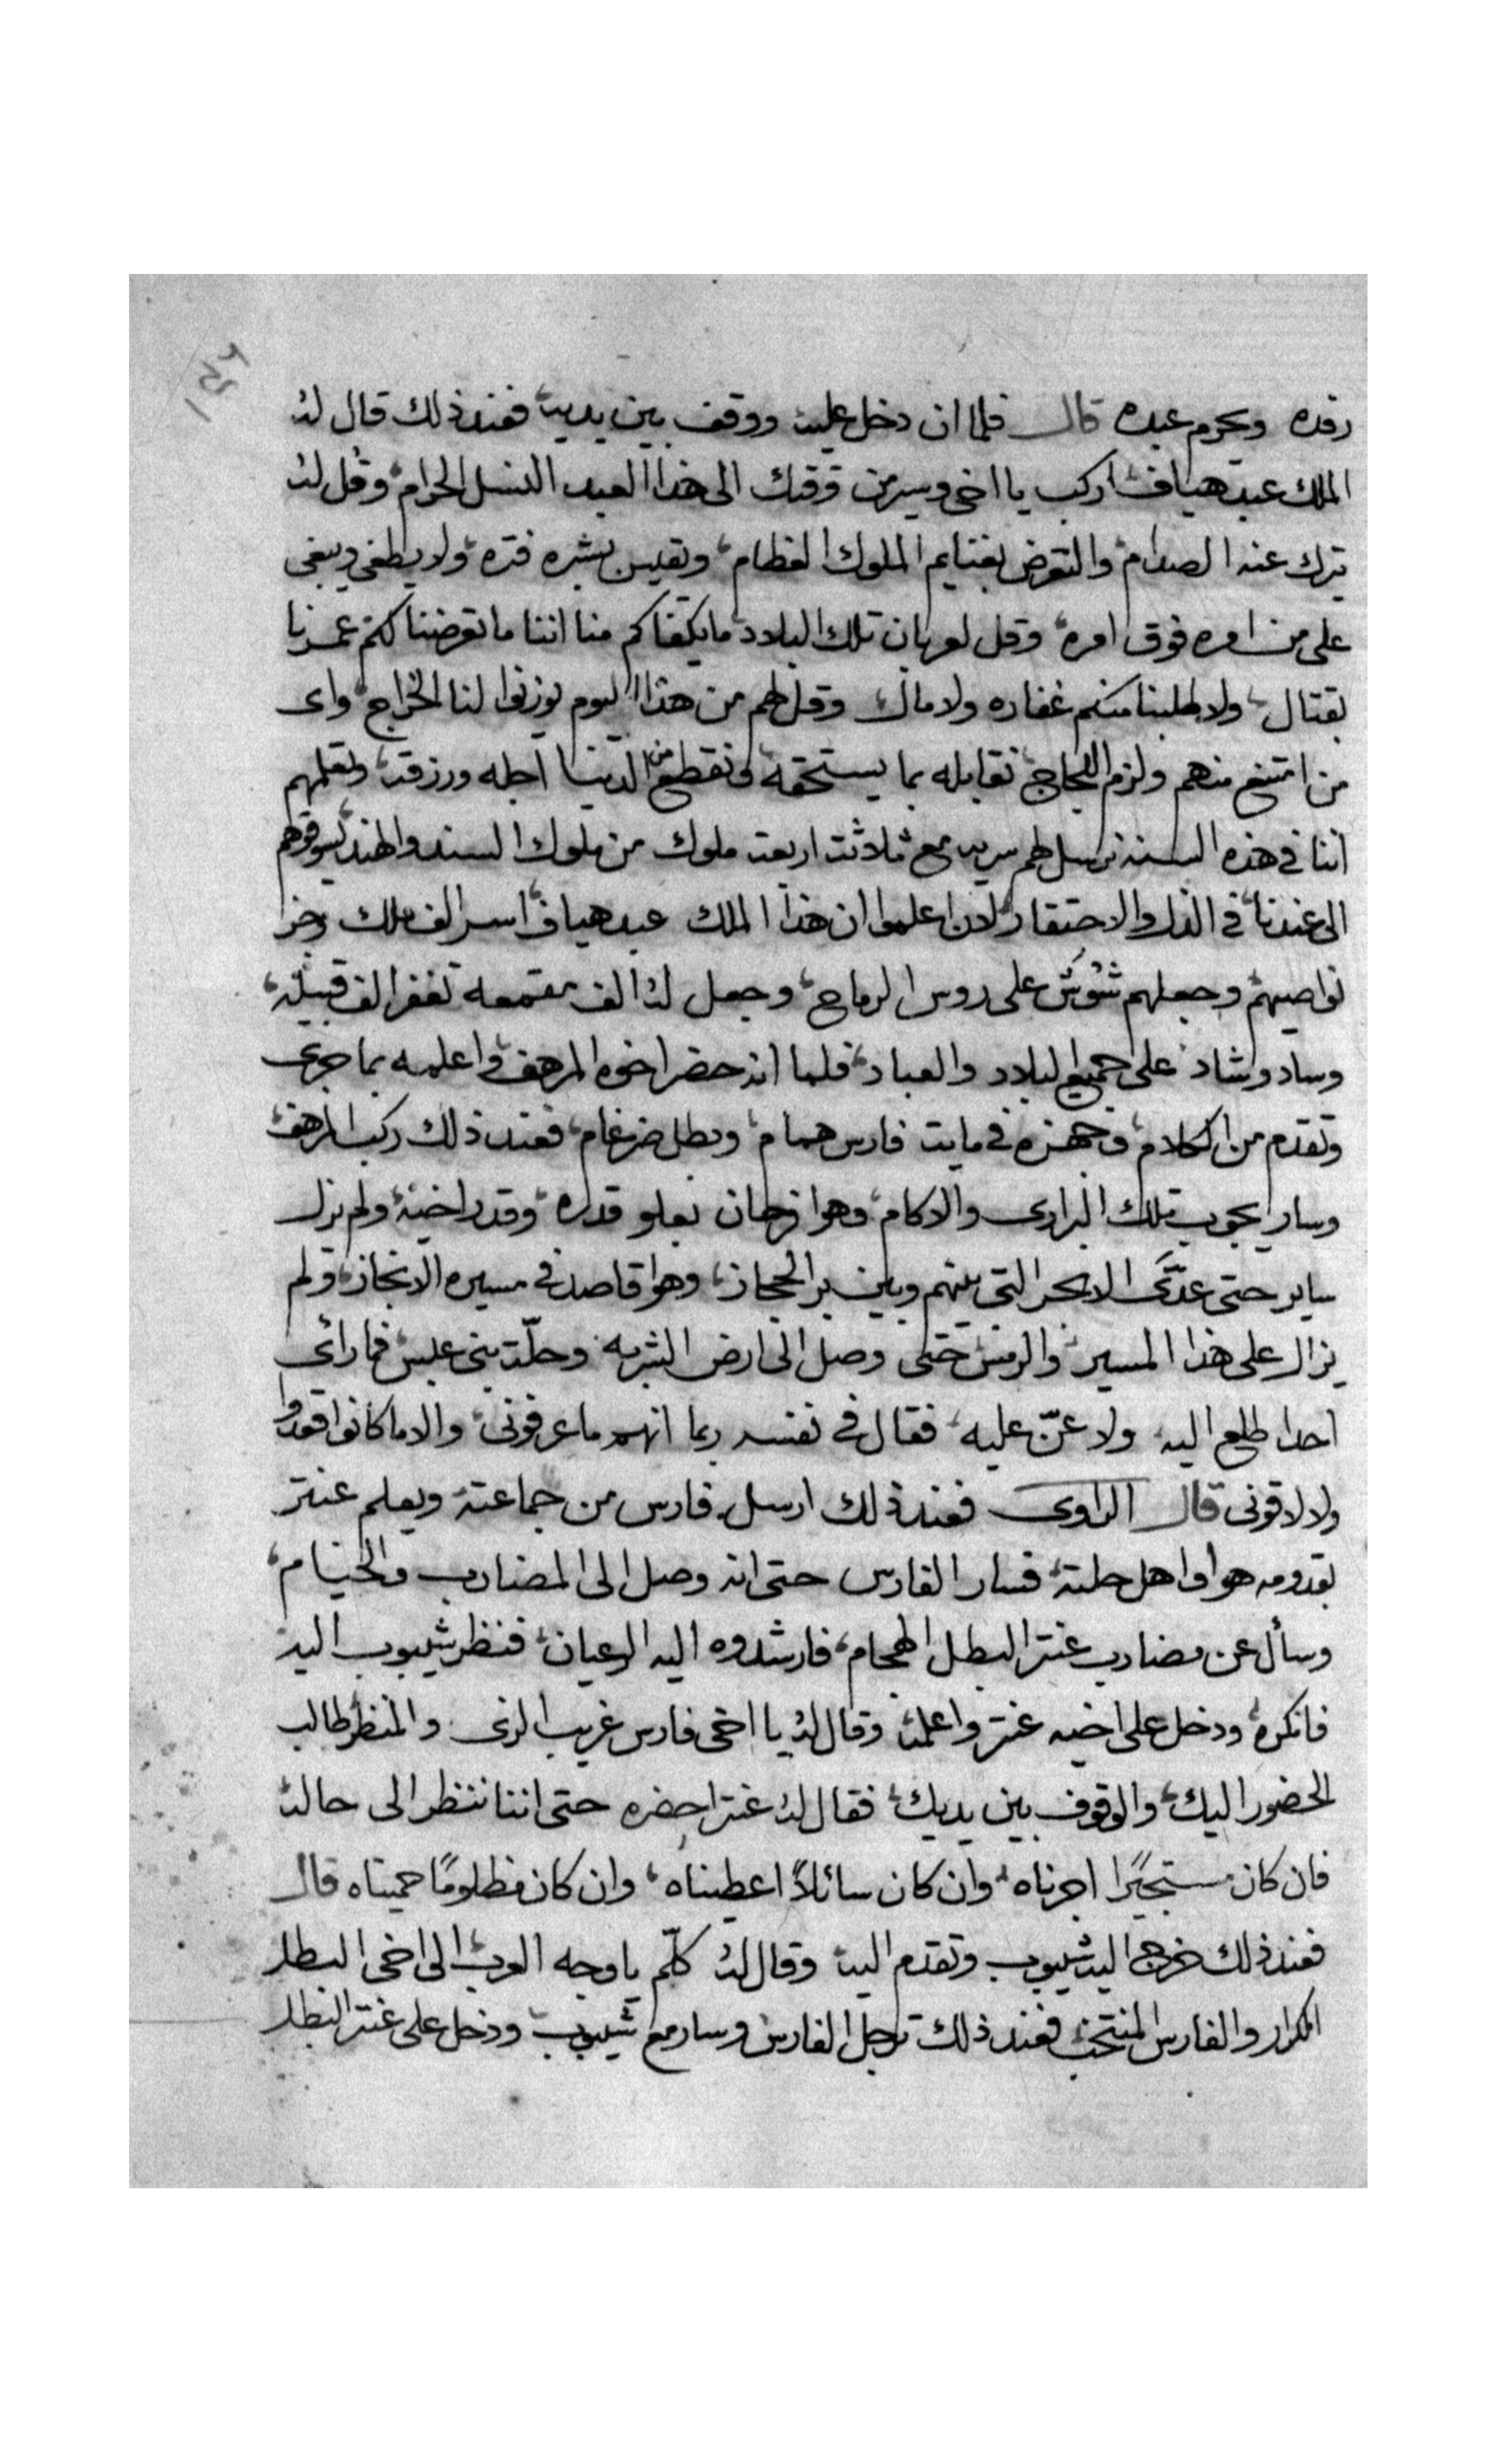 رفده ويحرم عبده قال فلما ان دخل عليه ووقف بين يديه فعند ذلك قال له
الملك عبد هياف اركب يا اخي وسير من وقتك الى هذا العبد النسل الحرام وقل له
يترك عنه الصدام والتعرض بغنايم الملوك العظام ويقيس بشبره فتره ولا يطغى ويبغى
على من امره فوق امره وقل لعربان تلك البلاد ما يكفاكم منا اننا ما تعرضنا لكم عمرنا
بقتال ولا طلبنا منكم غفاره ولا مال وقل لهم من هذا اليوم يوزنوا لنا الخراج واى
من امتنع منهم ولزم اللجاج نقابله بما يستحقه ونقطع من الدنيا اجله ورزقه وتعلمهم
اننا في هذه السنه نرسل لهم سريه مع ثلاثة اربعة ملوك من ملوك السند والهند يسوقوهم
الى عندنا في الذل والاحتقار لان اعلموا ان هذا الملك عبد هياف اسر الف ملك وجز
نواصيهم وجعلهم شوش على روس الرماح وجعل له الف مقمعه تغفر الف قبيله
وساد وشاد على جميع البلاد والعباد فلما انه حضر اخوه المرهف واعلمه بما جرى
وتقدم من الكلام وجهزه في ماية فارس همام وبطل ضرغام فعند ذلك ركب المرهف
وسار يجوب تلك البرارى والاكام وهوا فرحان بعلو قدره وقدر اخيه ولم يزل
ساير حتى عدى الابحر التي بينهم وبين بر الحجاز وهوا قاصد في مسيره الانجاز ولم
يزال على هذا المسير حتى وصل الى ارض الشربه وحلّة بني عبس فما رائى
احدا طلع اليه ولا عنّ عليه فقال في نفسه ربما انهم ما عرفونى والا ما كانوا قعدوا
ولا لاقونى قال الراوى فعند ذلك ارسل فارس من جماعته ويعلم عنتر
بقدومه هوا واهل حلته فسار الفارس حتى انه وصل الى المضارب والخيام
وسأل عن مضارب عنتر البطل الهجام فارشدوه اليه الرعيان فنظر شيبوب اليه
فانكره ودخل على اخيه عنتر واعلمه وقال له يا اخى فارس غريب الزى والمنظر طالب
الحضور اليك والوقوف بين يديك فقال له عنتر احضره حتى اننا ننظر الى حاله
فان كان مستجيرًا اجرناه وان كان سائلاً اعطيناه وان كان مظلومًا حميناه قال
فعند ذلك خرج اليه شيبوب وتقدم اليه وقال له كلّم يا وجه العرب الى اخى البطل
الكرار والفارس المنتخب فعند ذلك ترجل الفارس وسار مع شيبوب ودخل على عنتر البطل